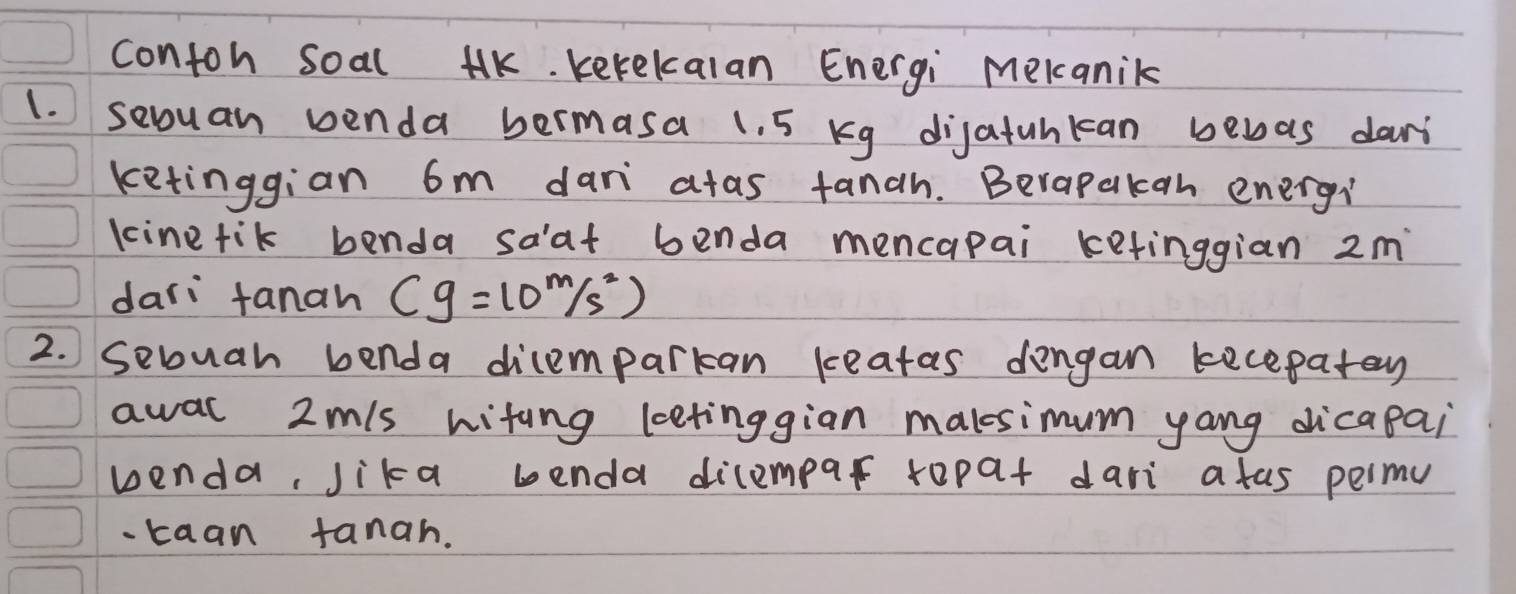 Contoh Soal HK. Kekekalan Energi Mekanik
1. Sebuah benda bermasa 1.5 kg dijatuhkan bebas dari
ketinggian 6m dari atas tanah. Berapakah energi
kinetik benda sa'at benda mencapai ketinggian 2m
dari tanah (g = 10 m/s²)
2. Sebuah benda dilemparkan keatas dengan kecepatan
awal 2m/s hitung ketinggian maksimum yang dicapai
benda, Jika benda dilempar tepat dari atas permu
-kaan tanah.